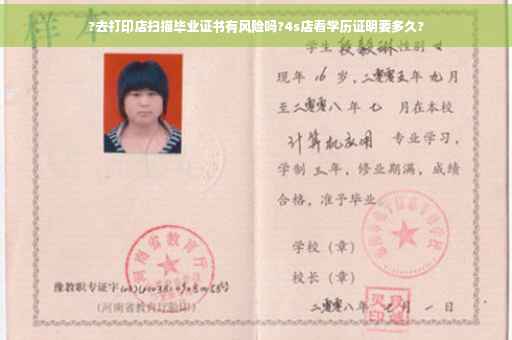 ?去打印店扫描毕业证书有风险吗?4s店看学历证明要多久?
样本
学生段毅琳性别女
现年16岁,二零零五年九月
至二零零八年七月在本校
计算机应用 专业学习,
学制三年,修业期满,成绩
合格,准予毕业。
学校(章)
校长(章)
二零零八年 月一日
河南省教育厅
豫教职专证字
(河南省教育厅验印)